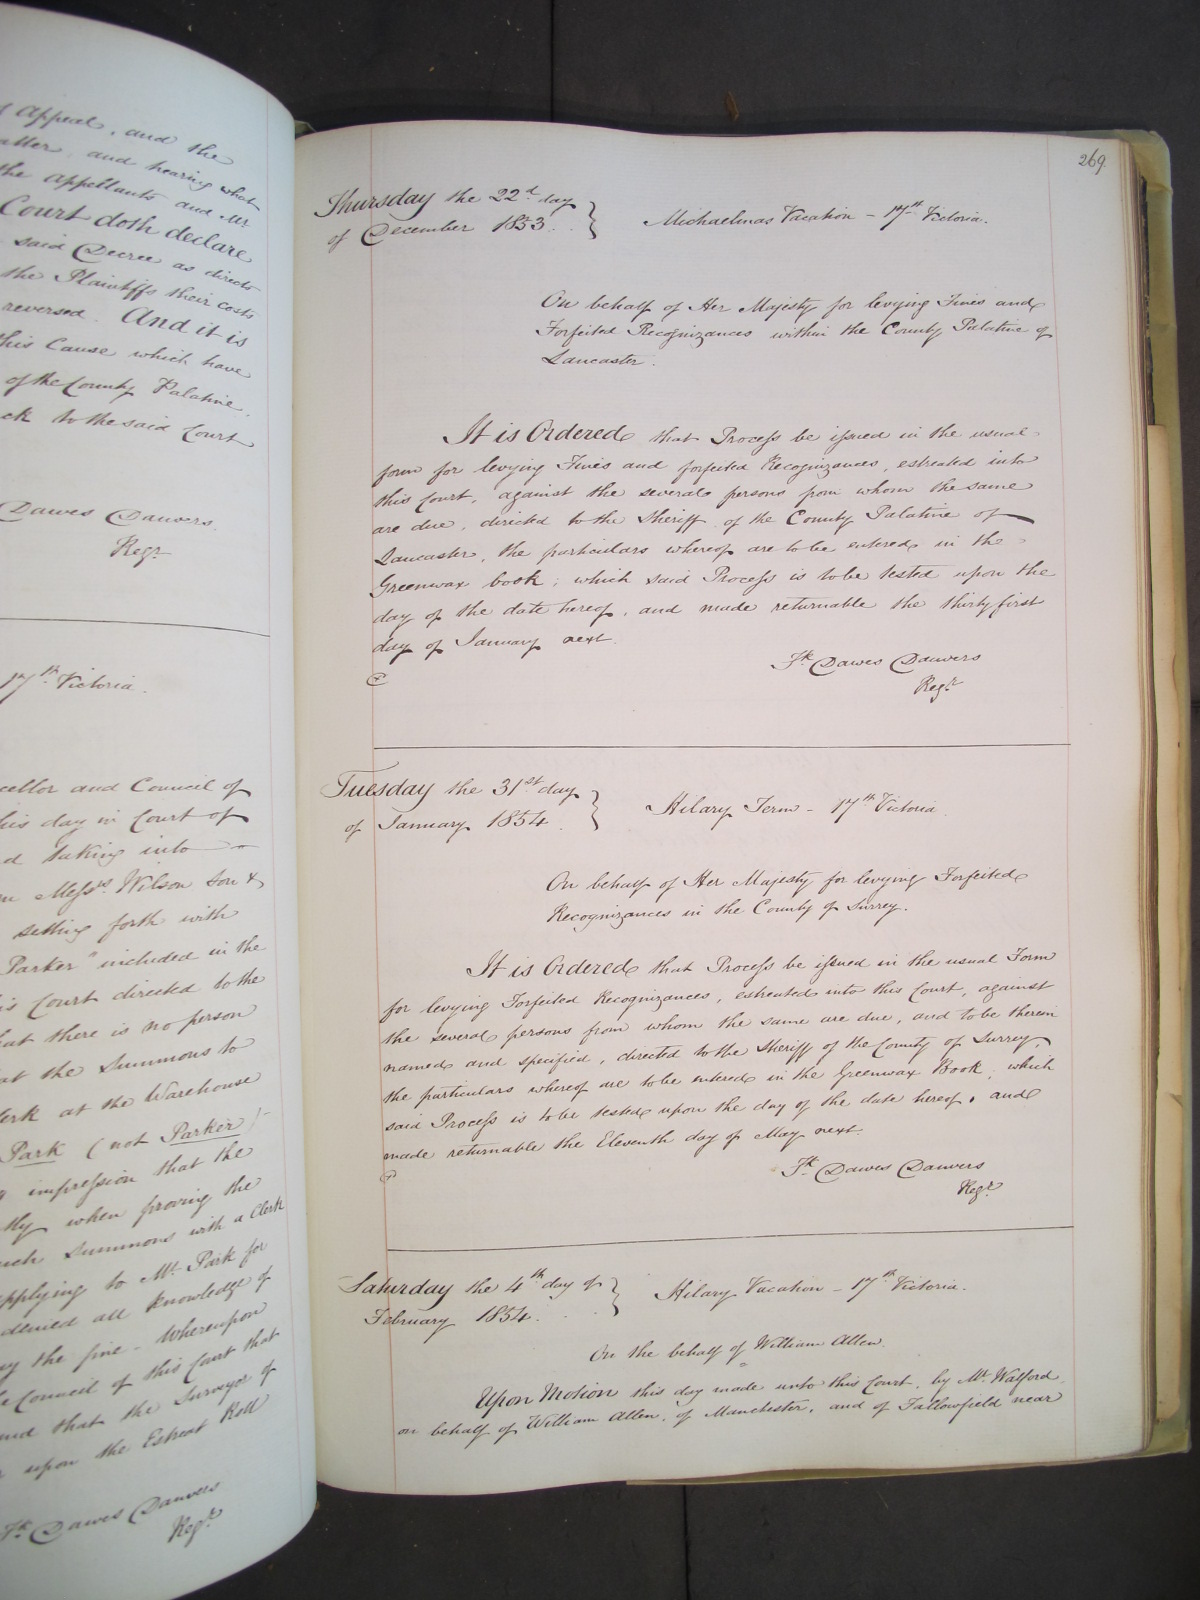 d Appeal, and the
atter, and hearing what
the Appellants and Mr
Court doth declare
said Decree as directs
the Plaintiffs their costs
reversed. And it is
this Cause which have
of the County Palatine,
ck to the said Court
Dawes Danvers.
Regr.
17th Victoria.
cellor and Council of
his day in Court of
d taking into
m Messrs Wilson Son &
setting forth with
Parker" included in the
is Court directed to the
hat there is no person
at the Summons to
lerk at the Warehouse
Park (not Parker)
impression that the
tly when proving the
uch Summons with a Clerk
pplying to Mr. Park for
denied all knowledge of
ay the fine - Whereupon
e Council of this Court that
und that the Surveyor of
upon the Estreat Roll
Fk. Dawes Danvers
Regr.
269
Thursday the 22d day
of December 1853.
Michaelmas Vacation - 17th Victoria.
On behalf of Her Majesty for levying Fines and
Forfeited Recognizances within the County Palatine of
Lancaster.
It is Ordered that Process be issued in the usual
form for levying Fines and forfeited Recognizances, estreated into
this Court, against the several persons from whom the same
are due, directed to the Sheriff of the County Palatine of
Lancaster, the particulars whereof are to be entered in the
Greenwax book; which said Process is to be tested upon the
day of the date hereof, and made returnable the thirty first
day of January next.
Fk. Dawes Danvers
Regr.
Tuesday the 31st day
of January 1854.
Hilary Term - 17th Victoria
On behalf of Her Majesty for levying Forfeited
Recognizances in the County of Surrey.
It is Ordered that Process be issued in the usual Form
for levying Forfeited Recognizances, estreated into this Court, against
the several persons from whom the same are due, and to be therein
named and specified, directed to the Sheriff of the County of Surrey,
the particulars whereof are to be entered in the Greenwax Book; which
said Process is to be tested upon the day of the date hereof, and
made returnable the Eleventh day of May next.
Fk. Dawes Danvers
Regr.
Saturday the 4th day of
February 1854.
Hilary Vacation - 17th Victoria.
On the behalf of William Allen.
Upon Motion this day made unto this Court, by Mr. Walford,
on behalf of William Allen, of Manchester, and of Fallowfield near